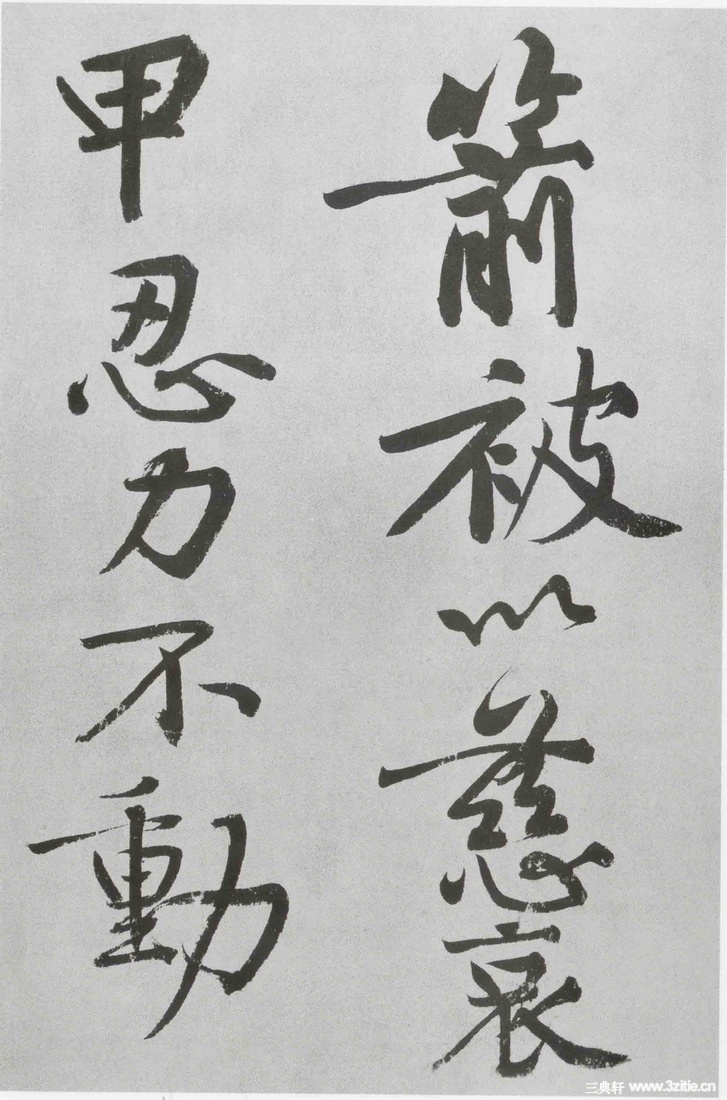 箭被以慈哀
甲忍力不動
三典轩 www.3zitie.cn